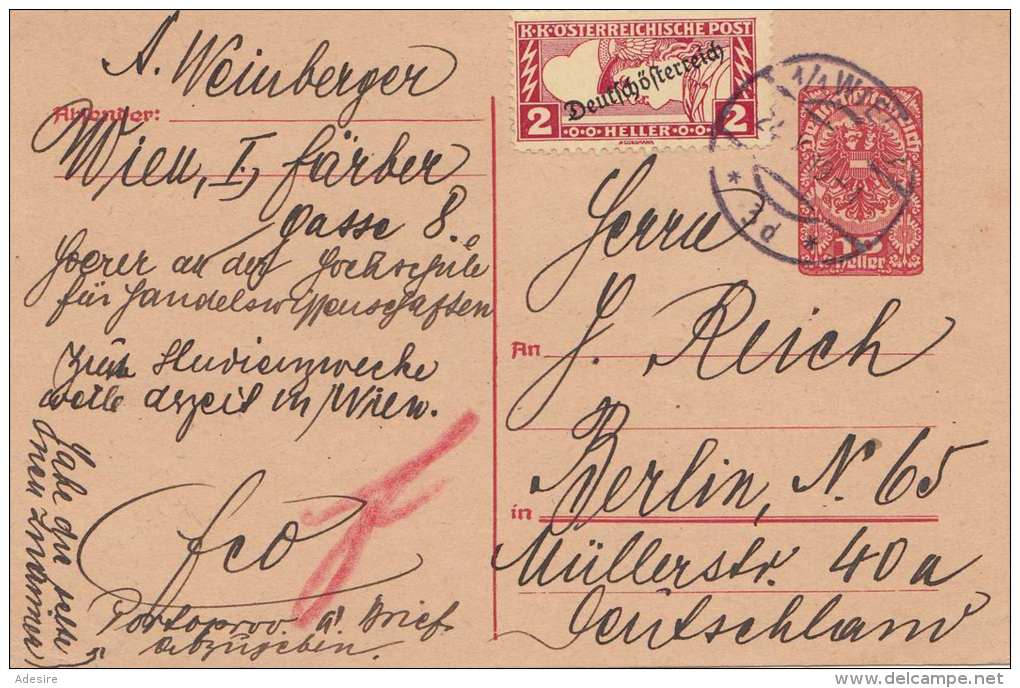 A. Weinberger
Absender:
Wien, I, Färber
gasse 8.
Hoerer an der Hochschule
für Handelswissenschaften
zum Studienzwecke
derzeit in Wien.
fco
a/ Brief
abzugeben.
K·K·ÖSTERREICHISCHE POST
Deutschösterreich
2 HELLER 2
Heller
Herrn
An J. Reich
in Berlin, N. 65
Müllerstr. 40a
Deutschland
Adesire
delcampe.net